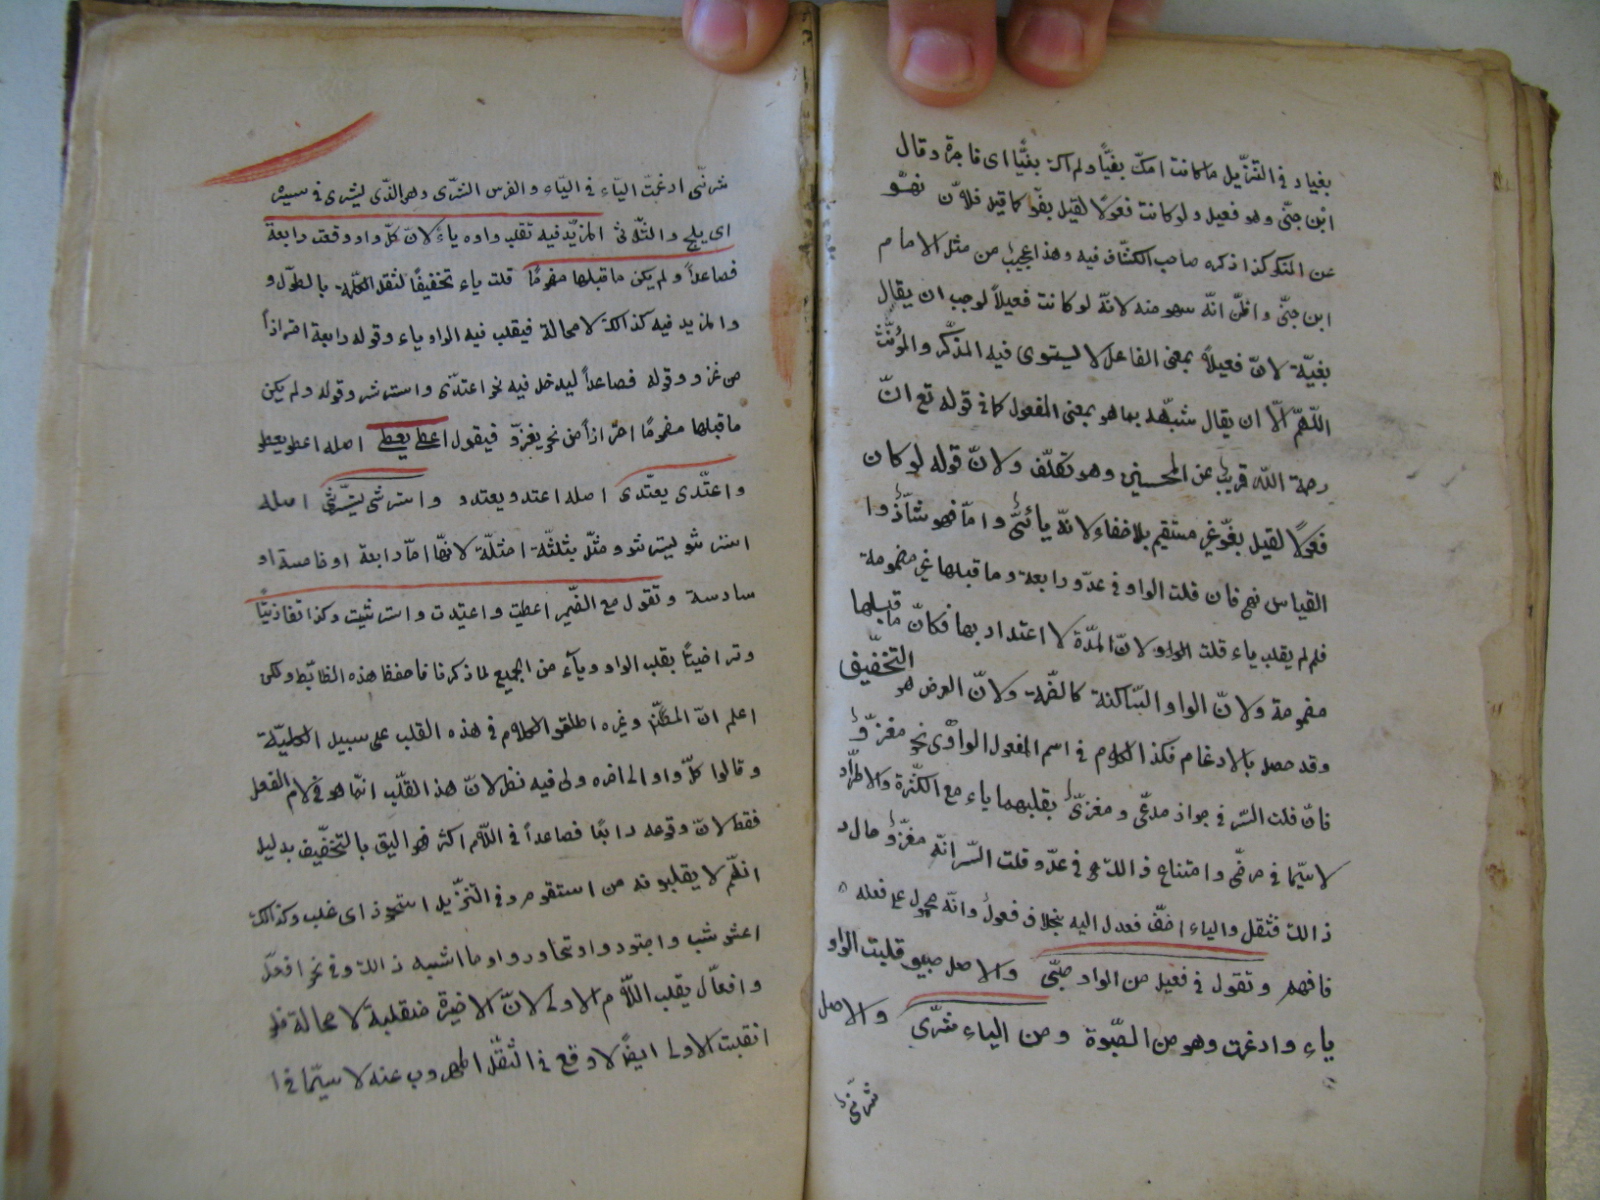 بغيا و فى التنزيل ما كانت امك بغيّا و لم اك بغيّا اى فاجرة و قال
ابن جنّى و هو فعيل و لو كانت فعولا لقيل بغوّ كما قيل فلان نهوّ
عن المنكر كذا ذكره صاحب الكشّاف فيه و هذا عجيب من مثل الامام
ابن جنّى و اظنّ انّه سهو منه لانّه لو كانت فعيلاً لوجب ان يقال
بغيّة لانّ فعيلاً بمعنى الفاعل لا يستوى فيه المذكّر و المؤنّث
اللّهمّ الّا ان يقال شبّهه بما هو بمعنى المفعول كما فى قوله تع انّ
رحمة اللّه قريب من المحسنين و هو تكلّف و لانّ قوله لو كان
فعولاً لقيل بغوّ غير مستقيم بلا خفاء لانّه يائىّ و امّا نهوّ شاذّ و
القياس نهى فان قلت الواو فى عدوّ رابعة و ما قبلها غير مضمومة
فلم لم يقلب ياء قلت الواو لانّ المدّة لا اعتداد بها فكانّ ما قبلها
مضمومة و لانّ الواو السّاكنة كالضّمة و لانّ الغرض هو التخفيف
و قد حصل بالادغام فكذا الكلام فى اسم المفعول الواوى نحو مغزوّ
فانّ قلت السّر فى جواز مدعىّ و مغزىّ بقلبهما ياء مع الكثرة و الاطّراد
لا سيّما فى مرضىّ و امتناع ذالك فى عدوّ قلت السّر انّه مغزوّ طال و
ذالك فثقل و الياء اخفّ فعدل اليه بخلاف فعول و انّه محمول على فعله
فافهم و تقول فى فعيل من الواو صبىّ و الاصل صبيو قلبت الواو
ياء و ادغمت و هو من الصّبوة و من الياء شرىّ و الاصل
شرىى
شرىى ادغمت الياء فى الياء و الفرس الشرى و هو الذى يشرى فى سيره
اى يلج و الثّلاثى المزيد فيه تقلب واوه ياء لانّ كلّ واو وقعت رابعة
فصاعداً و لم يكن ما قبلها مضمومًا قلبت ياء تخفيفًا لثقل الكلمة بالطول و
و المزيد فيه كذالك لا محالة فيقلب فيه الواو ياء و قوله رابعة احترازاً
من غزو و قوله فصاعداً ليدخل فيه نحو اعتدى و استرشى و قوله و لم يكن
ما قبلها مضمومًا احترازاً من نحو يغزو فيقول اعطى يعطى اصله اعطو يعطو
و اعتدى يعتدى اصله اعتدو يعتدو و استرشى يسترشى اصله
استرشو يسترشو و مثّل بثلثة امثلة لانّها امّا رابعة او خامسة او
سادسة و تقول مع الضّمير اعطيت و اعتديت و استرشيت و كذا تغازينا
و تراضينا بقلب الواو ياء من الجميع لما ذكرنا فاحفظ هذه الضّابطة و لكن
اعلم انّ المصنّف و غيره اطلقوا الكلام فى هذه القلب على سبيل الكليّة
و قالوا كلّ واو الى اخره و لى فيه نظر لانّ هذ القلب انّما هو فى لام الفعل
فقط لانّ وقوعه رابعًا فصاعداً فى اللّام اكثر فهو اليق بالتخفيف بدليل
انّهم لا يقلبونه من استقوم و فى التنزيل استحوذ اى غلب و كذالك
اعشوشب و اجتور و تجاور و ما اشبه ذالك و فى نحو افعلّ
و افعالّ يقلب اللّام الاولى لانّ الاخيرة منقلبة لا محالة فلو
انقلبت الاولى ايضًا لا وقع فى الثقل المهروب عنه لا سيّما فى ا